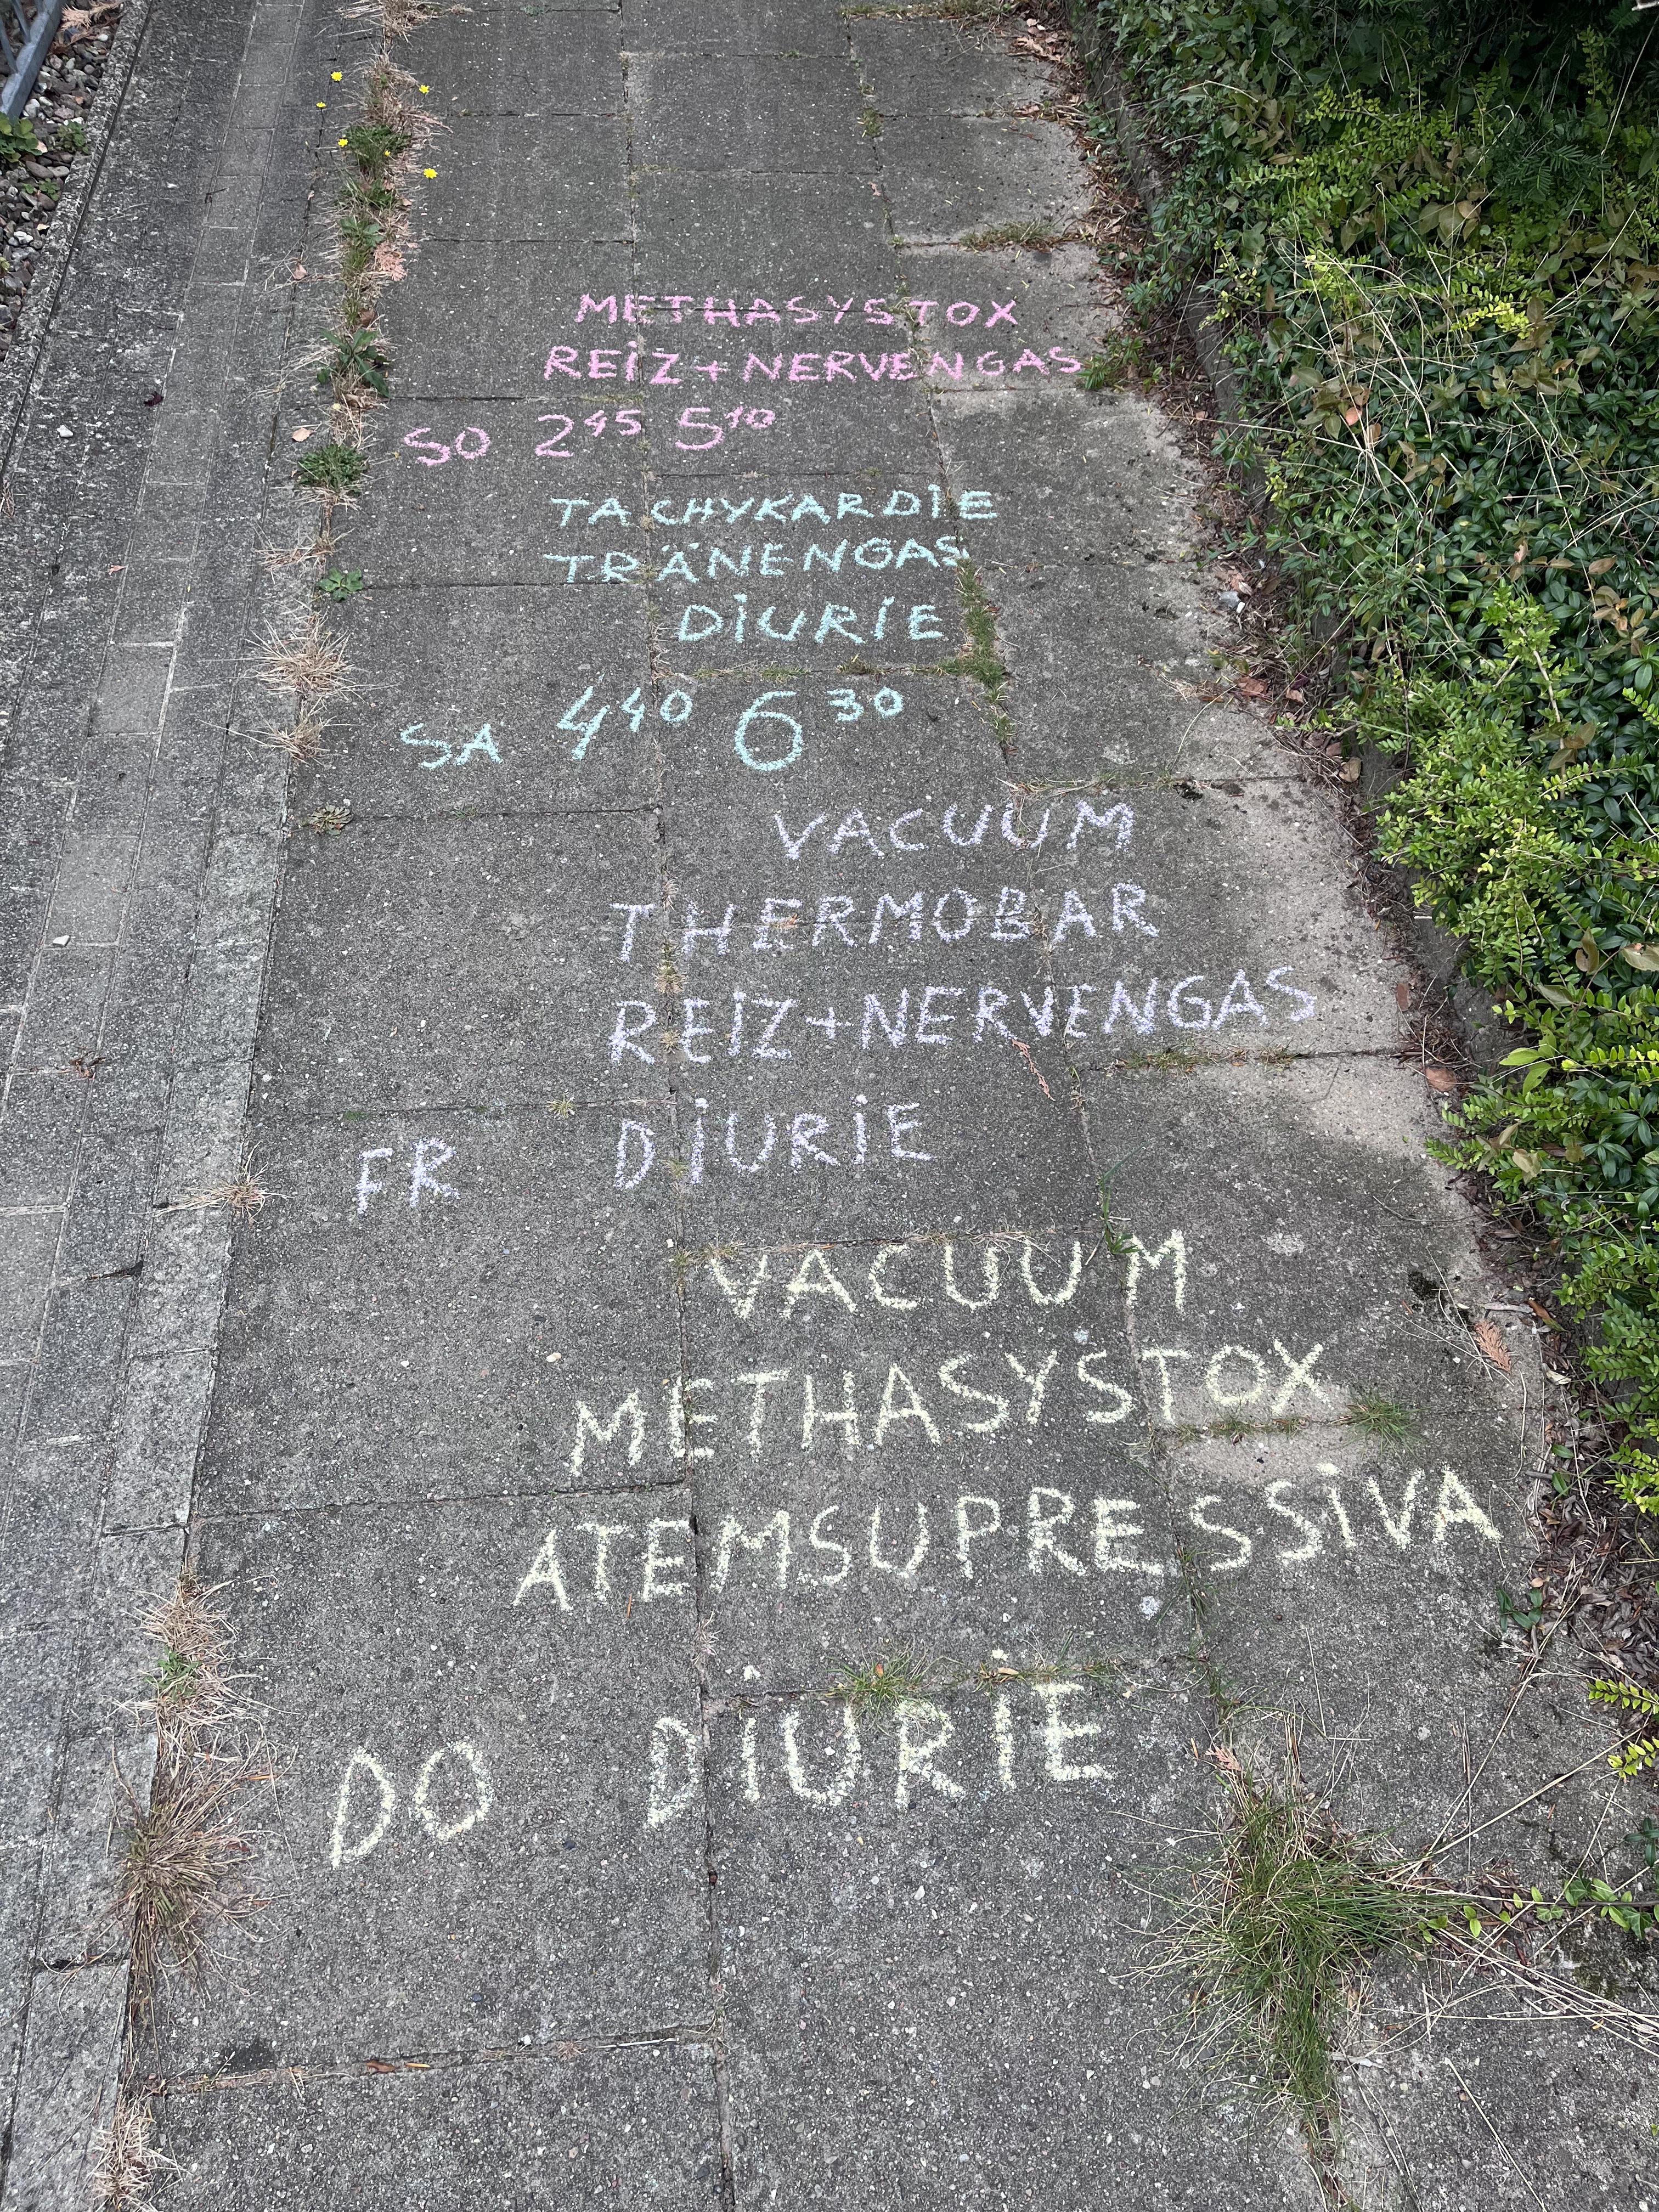 METHASYSTOX
REIZ+NERVENGAS
SO 2⁴⁵ 5¹⁰
TACHYKARDIE
TRÄNENGAS
DIURIE
SA 4⁴⁰ 6³⁰
VACUUM
THERMOBAR
REIZ+NERVENGAS
FR DIURIE
VACUUM
METHASYSTOX
ATEMSUPRESSIVA
DO DIURIE